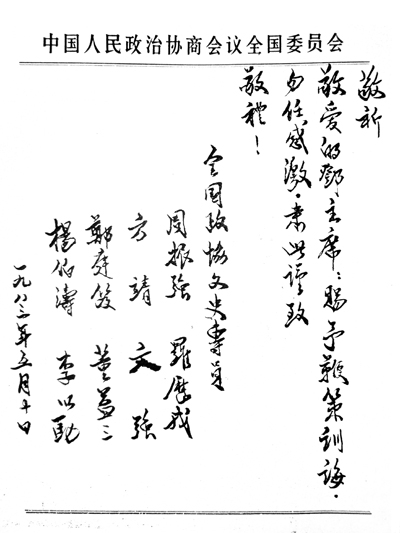 中国人民政治协商会议全国委员会
敬祈
敬爱的鄧主席：赐予鞭策训诲，
勿任感激。肃此谨致
敬礼！
全国政协文史专员
周振强 羅歷戎
方靖 文强
鄭庭笈 董益三
楊伯濤 李以劻
一九八三年五月十日